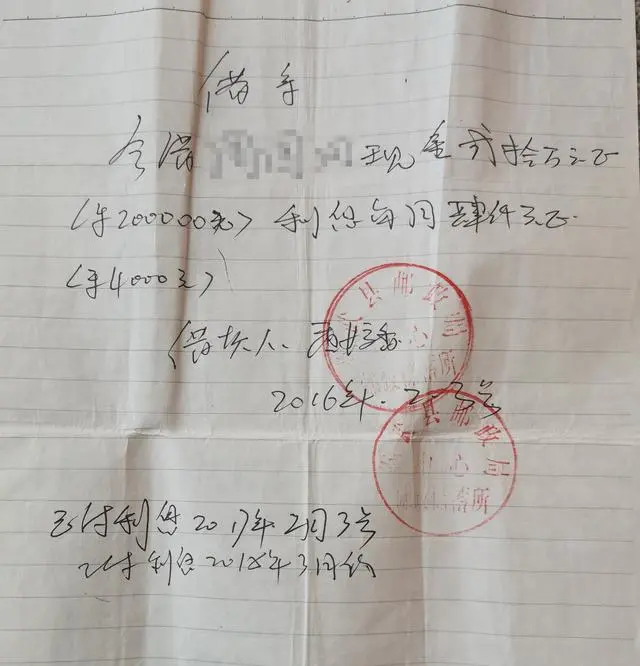 借条
今借 现金贰拾万元正
(¥200000元) 利息每月肆仟元正
(¥4000元)
借款人
2016年.2.3号
已付利息2017年2月3号
已付利息2018年3月
县邮政局
中心
储所
县邮政局
中心
储所